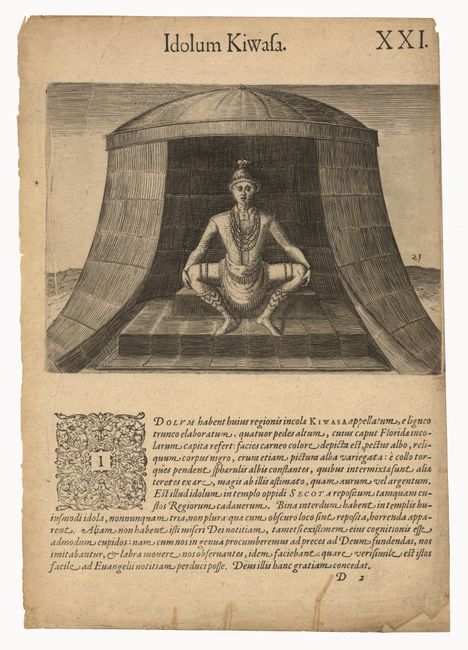 Idolum Kiwasa.
XXI.
21
IDOLVM habent huius regionis incolæ KIWASA appellatum, e ligneo
trunco elaboratum, quatuor pedes altum, cuius caput Floridæ inco-
larum capita refert: facies carneo colore depicta est, pectus albo, reli-
quum corpus nigro, crura etiam pictura alba variegata: è collo tor-
ques pendent sphærulis albis constantes, quibus intermixtæ sunt aliæ
teretes ex ære, magis ab illis æstimato, quam aurum vel argentum.
Est illud idolum in templo oppidi SECOTA repositum tamquam cu-
stos Regiorum cadauerum. Bina interdum habent in templis hu-
iusmodi idola, nonnunquam tria, non plura quæ cum obscuro loco sint reposita, horrenda appa-
rent. Aliam non habent isti miseri Dei notitiam, tametsi existimem eius cognitionis esse
admodum cupidos: nam cum nos in genua procumberemus ad preces ad Deum fundendas, nos
imitabantur, & labra mouere nos obseruantes, idem faciebant: quare verisimile est istos
facile ad Euangelii notitiam perduci posse. Deus illis hanc gratiam concedat.
D 2